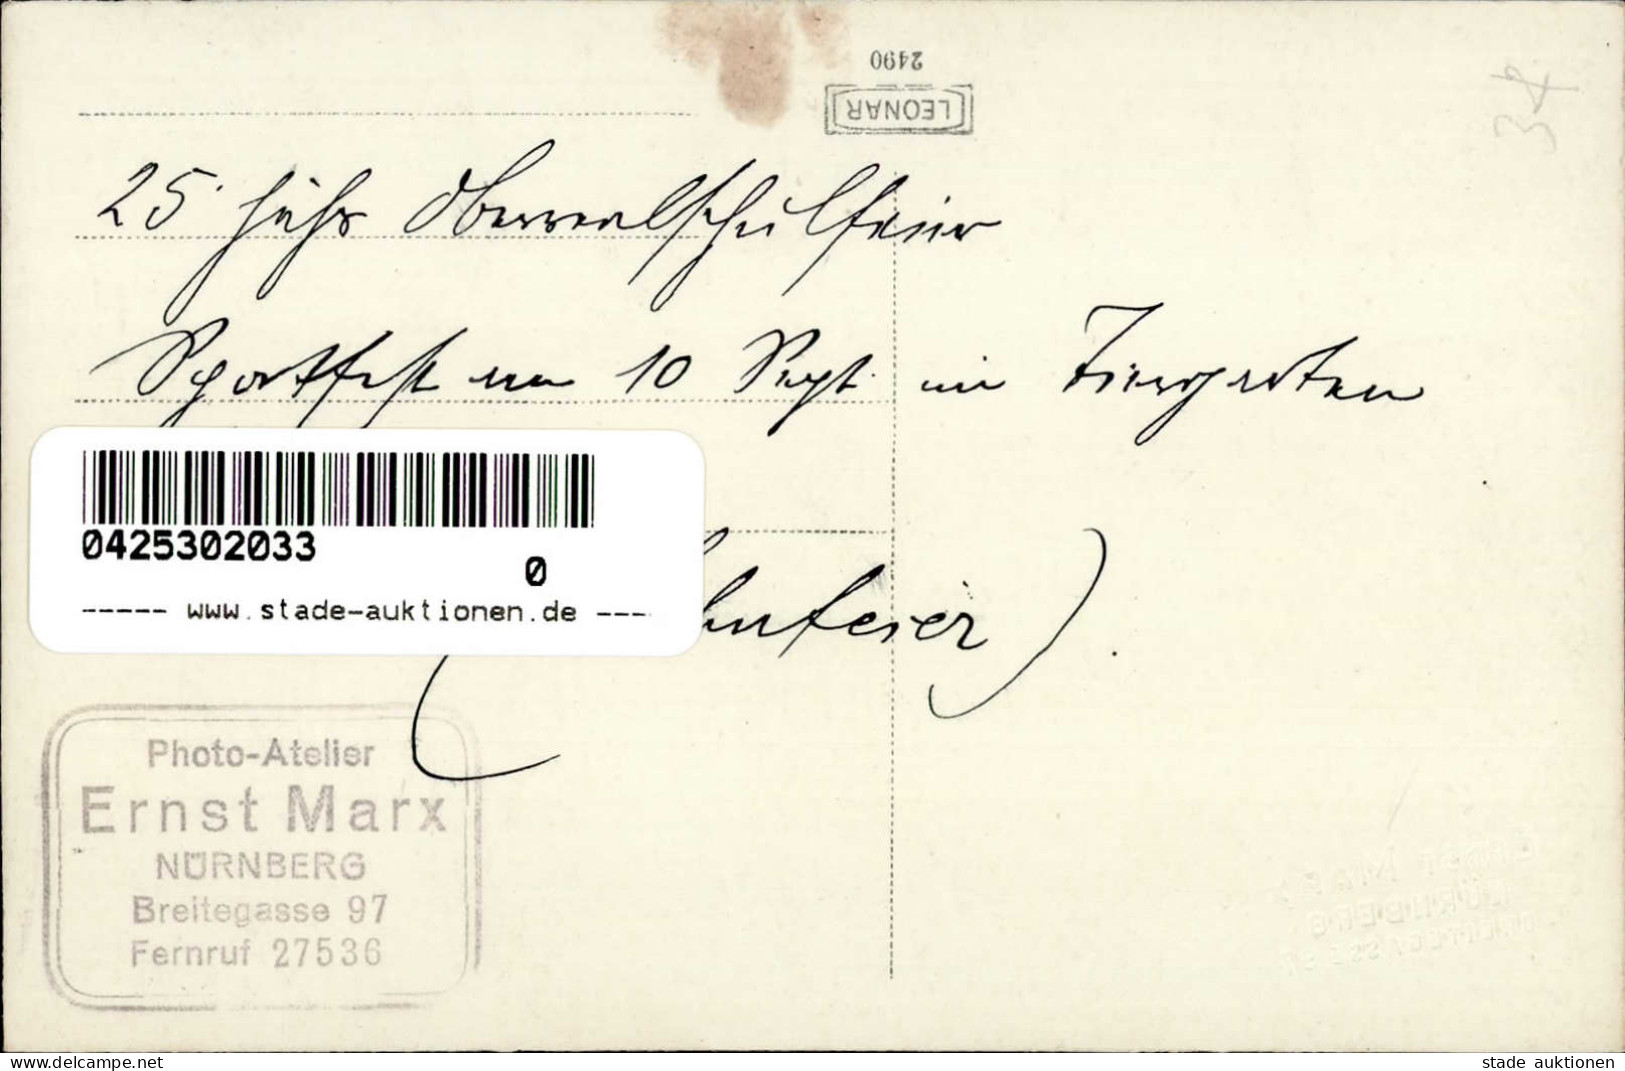 2490
LEONAR
34
25 jähr Oberrealschulfeier
Sportfest am 10 Sept. im Tiergarten
0425302033
0
----- www.stade-auktionen.de ----
feier).
Photo-Atelier
Ernst Marx
NÜRNBERG
Breitegasse 97
Fernruf 27536
ERNST MARX
NÜRNBERG
BREITEGASSE 97
www.delcampe.net
stade auktionen